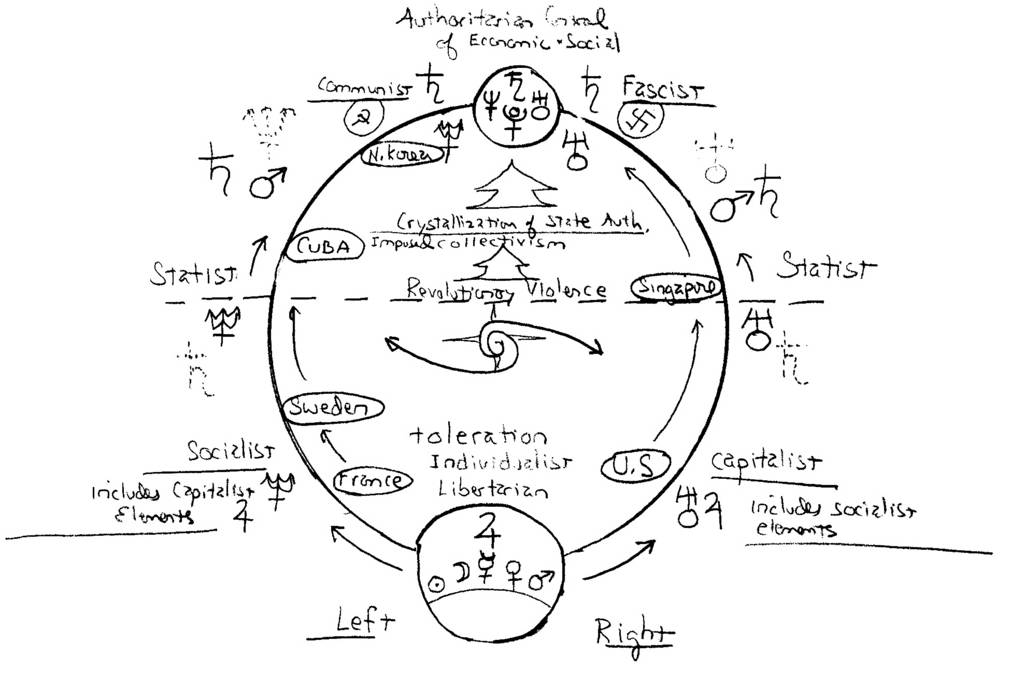 Authoritarian Control
of Economic + Social
Communist
Fascist
N. Korea
Crystallization of State Auth.
Imposed collectivism
CUBA
Statist
Statist
Revolutionary Violence
Singapore
Sweden
toleration
Individualist
Libertarian
Socialist
includes Capitalist
Elements
France
U.S
Capitalist
includes socialist
elements
Left
Right